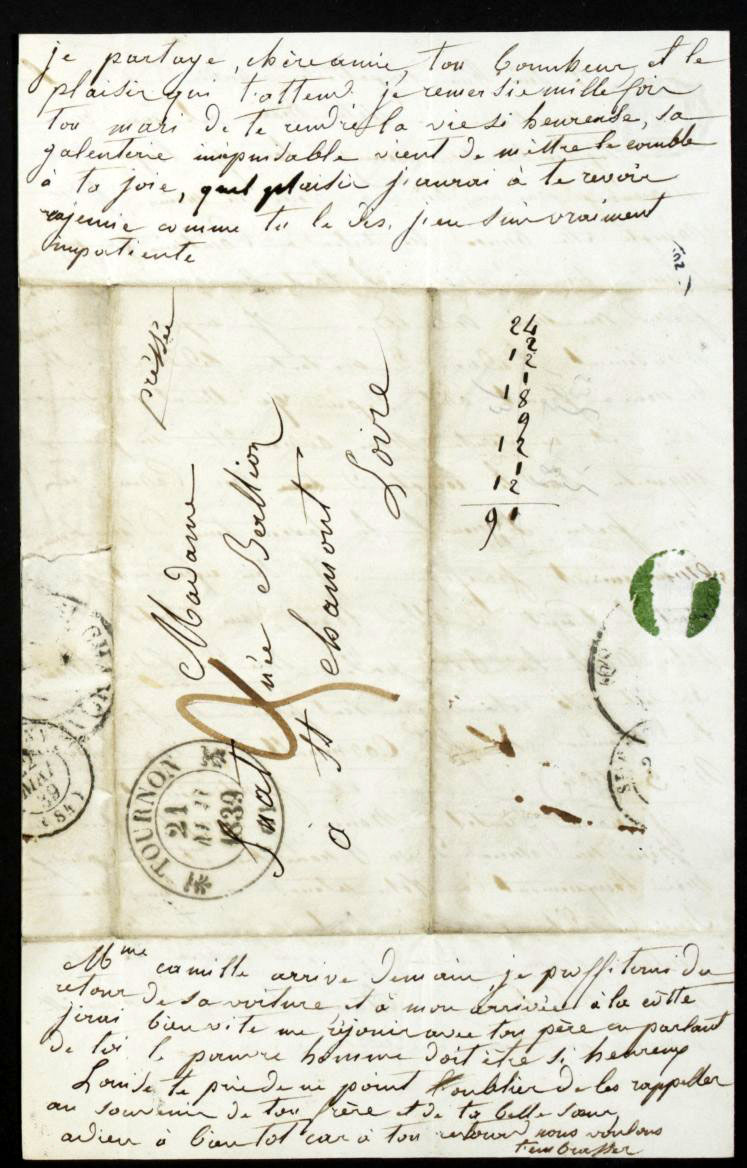 je partage, chère amie, ton bonnheur et le
plaisir qui t'attend je remersie mille fois
ton mari de te rendre la vie si heureuse, sa
galenterie inepuisable vient de mettre le comble
à ta joie, quel plaisir j'aurai à te revoir
rajennie comme tu le dis, j'en suis vraiment
impatiente
préssée
Madame
née Berlhion
à St chamont
Loire
TOURNON
21
MAI
1839
24
2
12
1
18
9
12
1
12
91
MAI
39
(84)
Mme camille arrive demain, je proffiterai du
retour de sa voiture et à mon arrivée à la côtte
jirai bien vite me réjouir avec ton père en parlant
de toi le pauvre homme doit être si heureux
Louise te prie de ne point l'oublier de les rappeller
au souvenir de ton frère et de ta belle sœur
adieu à bientot car à ton retour nous voulons
t'embrasser